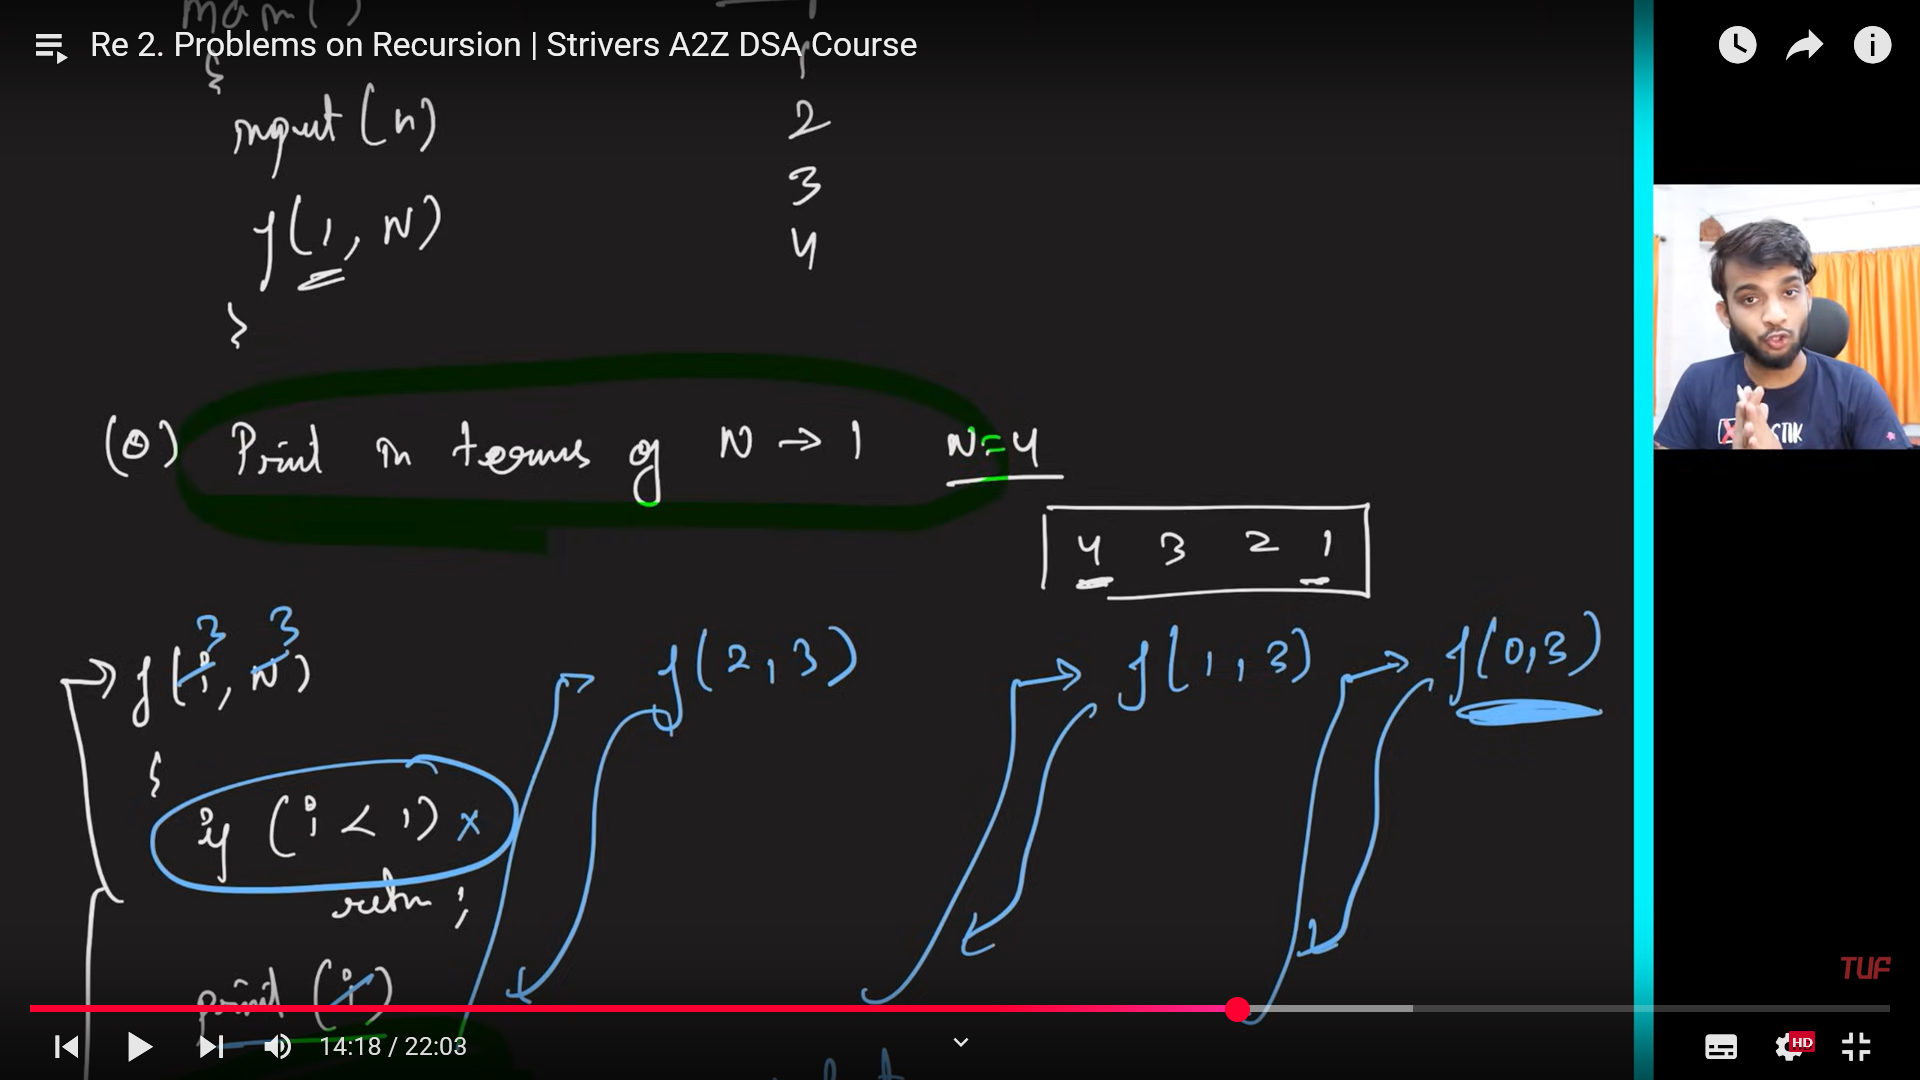 Re 2. Problems on Recursion | Strivers A2Z DSA Course
main()
{
input(n)
f(1, N)
}
1
2
3
4
(Q) Print in terms of N → 1 N=4
4 3 2 1
3 3
f(i, N)
f(2,3)
f(1,3)
f(0,3)
{
if (i < 1) x
return;
print(i)
TUF
14:18 / 22:03
HD